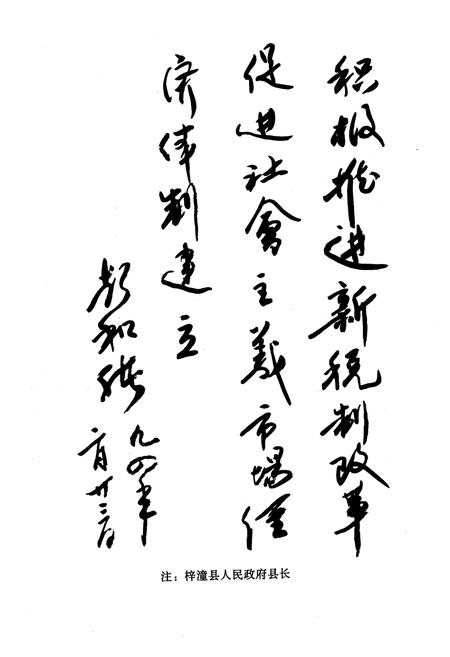 积极推进新税制改革
促进社会主义市场经
济体制建立
彭和
九四年
二月廿三日
注：梓潼县人民政府县长